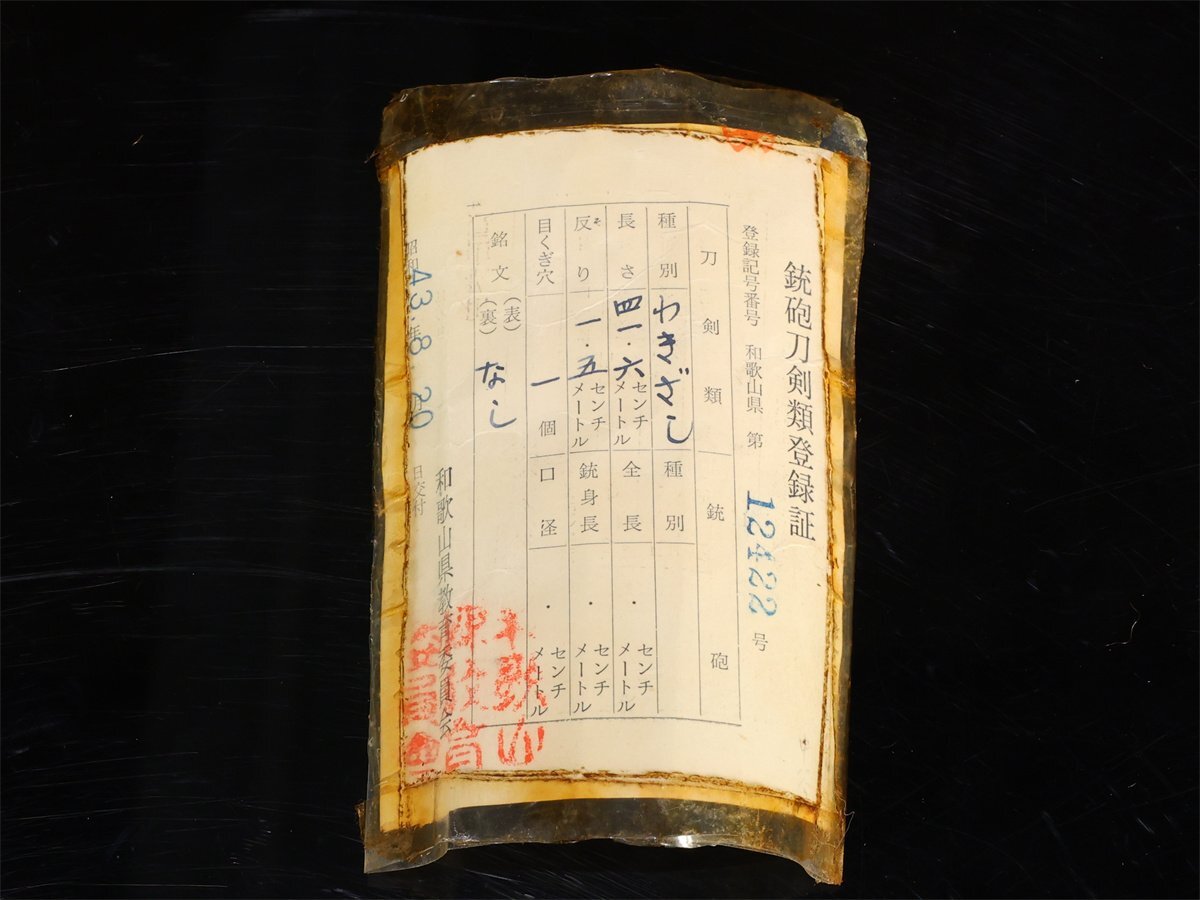 銃砲刀剣類登録証
登録記号番号 和歌山県 第 12422 号
刀剣類 銃砲
種別 わきざし 種別
長さ 四一.六 センチメートル 全長 ・ センチメートル
反り そ 一.五 センチメートル 銃身長 ・ センチメートル
目くぎ穴 一 個 口径 ・ センチメートル
銘文 (表) (裏) なし
昭和 43.年8 20 日交付
和歌山県教育委員会